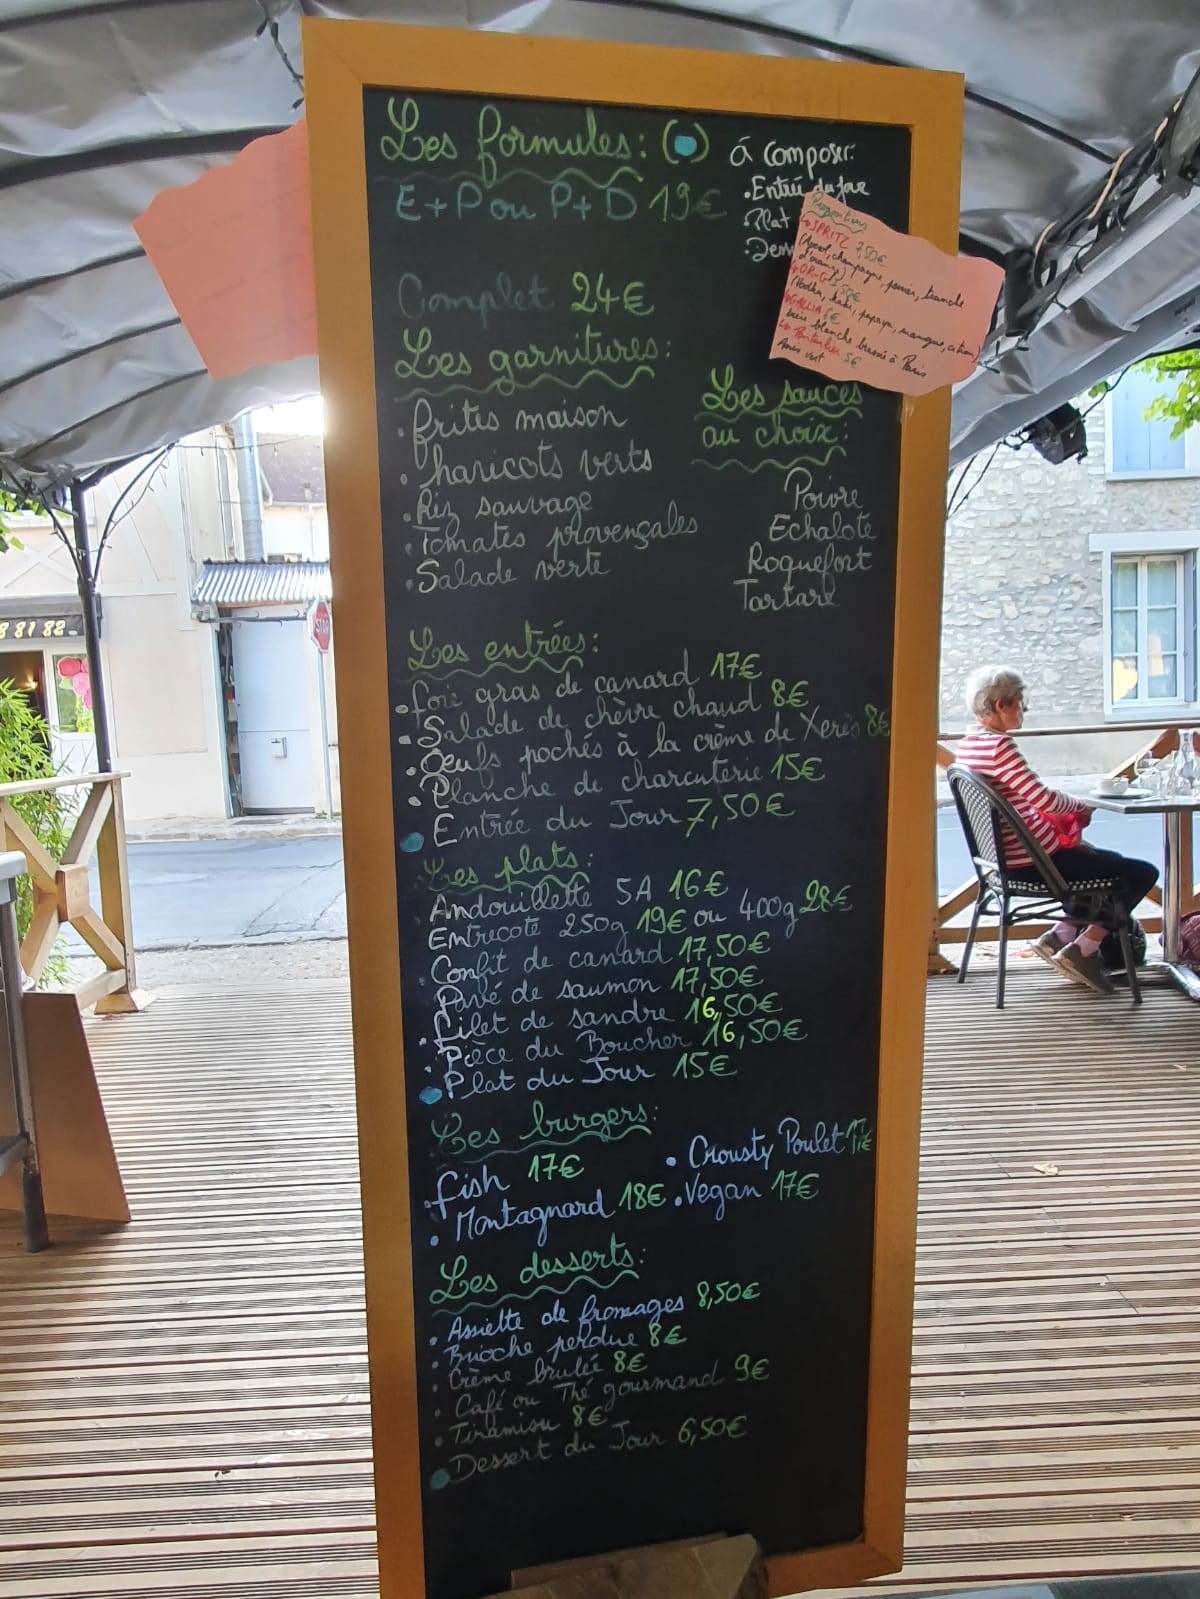 Les formules: ( )
E+P ou P+D 19€
Complet 24€
à composer:
• Entrée du jour
• Plat
• Dess
Propositions
SPRITZ 7,50€
(Aperol, champagne, perrier, tranche
d'orange)
(Vodka, kiwi, papaya, mangue, citron)
GALLIA 6€
bière blanche brassée à Paris
Pontarlier 5€
Anis vert
Les garnitures:
• frites maison
• haricots verts
• Riz sauvage
• Tomates provençales
• Salade verte
Les sauces
au choix:
Poivre
Echalote
Roquefort
Tartare
Les entrées:
• foie gras de canard 17€
• Salade de chèvre chaud 8€
• Oeufs pochés à la crème de Xerès 8€
• Planche de charcuterie 15€
Entrée du Jour 7,50€
Les plats:
Andouillette 5A 16€
Entrecote 250g 19€ ou 400g 28€
Confit de canard 17,50€
Pavé de saumon 17,50€
• Filet de sandre 16,50€
• Pièce du Boucher 16,50€
Plat du Jour 15€
Les burgers:
• fish 17€
• Crousty Poulet 17€
• Montagnard 18€
• Vegan 17€
Les desserts:
• Assiette de fromages 8,50€
• Brioche perdue 8€
• Crème brulée 8€
• Café ou Thé gourmand 9€
• Tiramisu 8€
Dessert du Jour 6,50€
8 81 82
STOP